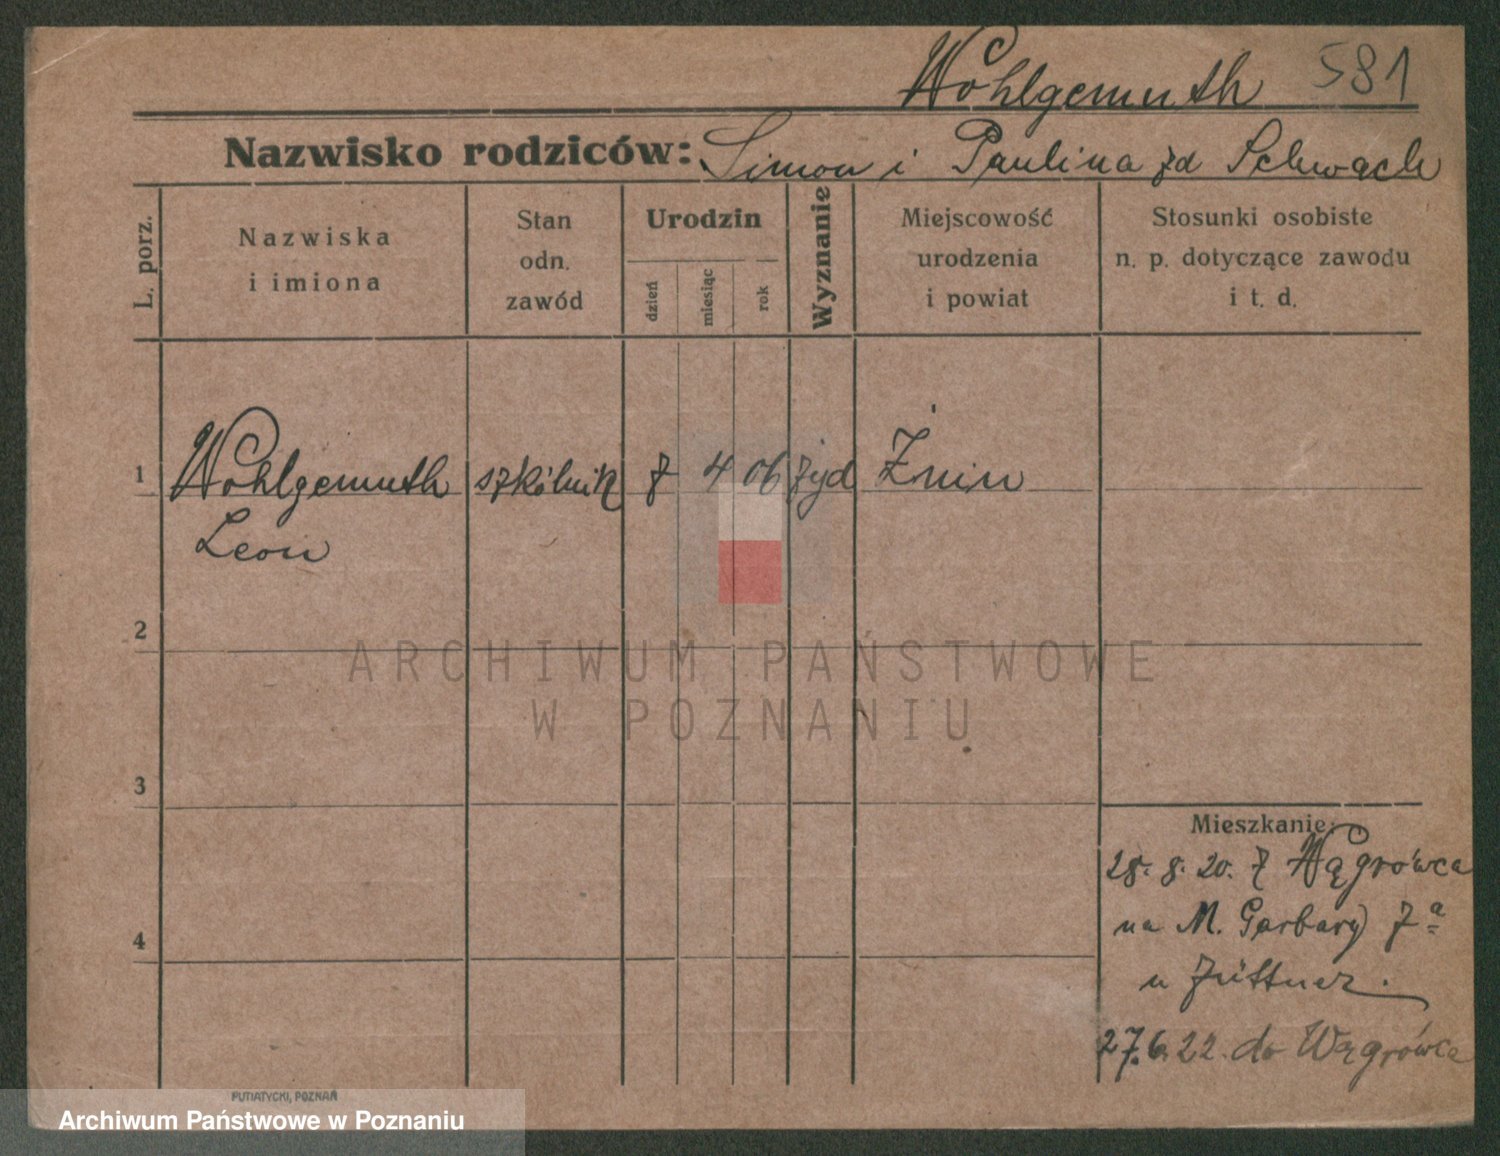 Wohlgemuth 581
Nazwisko rodziców: Simon i Paulina zd Schwach
L. porz.
Nazwiska
i imiona
Stan
odn.
zawód
Urodzin
dzień
miesiąc
rok
Wyznanie
Miejscowość
urodzenia
i powiat
Stosunki osobiste
n. p. dotyczące zawodu
i t. d.
1 Wohlgemuth szkólnik 7 4 06 żyd Żnin
Leon
2
ARCHIWUM PAŃSTWOWE
W POZNANIU
3
Mieszkanie:
28. 8. 20. z Wągrówca
na M. Garbary 7a
4
u Jüttner.
27.6.22. do Wągrówca
PUTIATYCKI, POZNAŃ
Archiwum Państwowe w Poznaniu